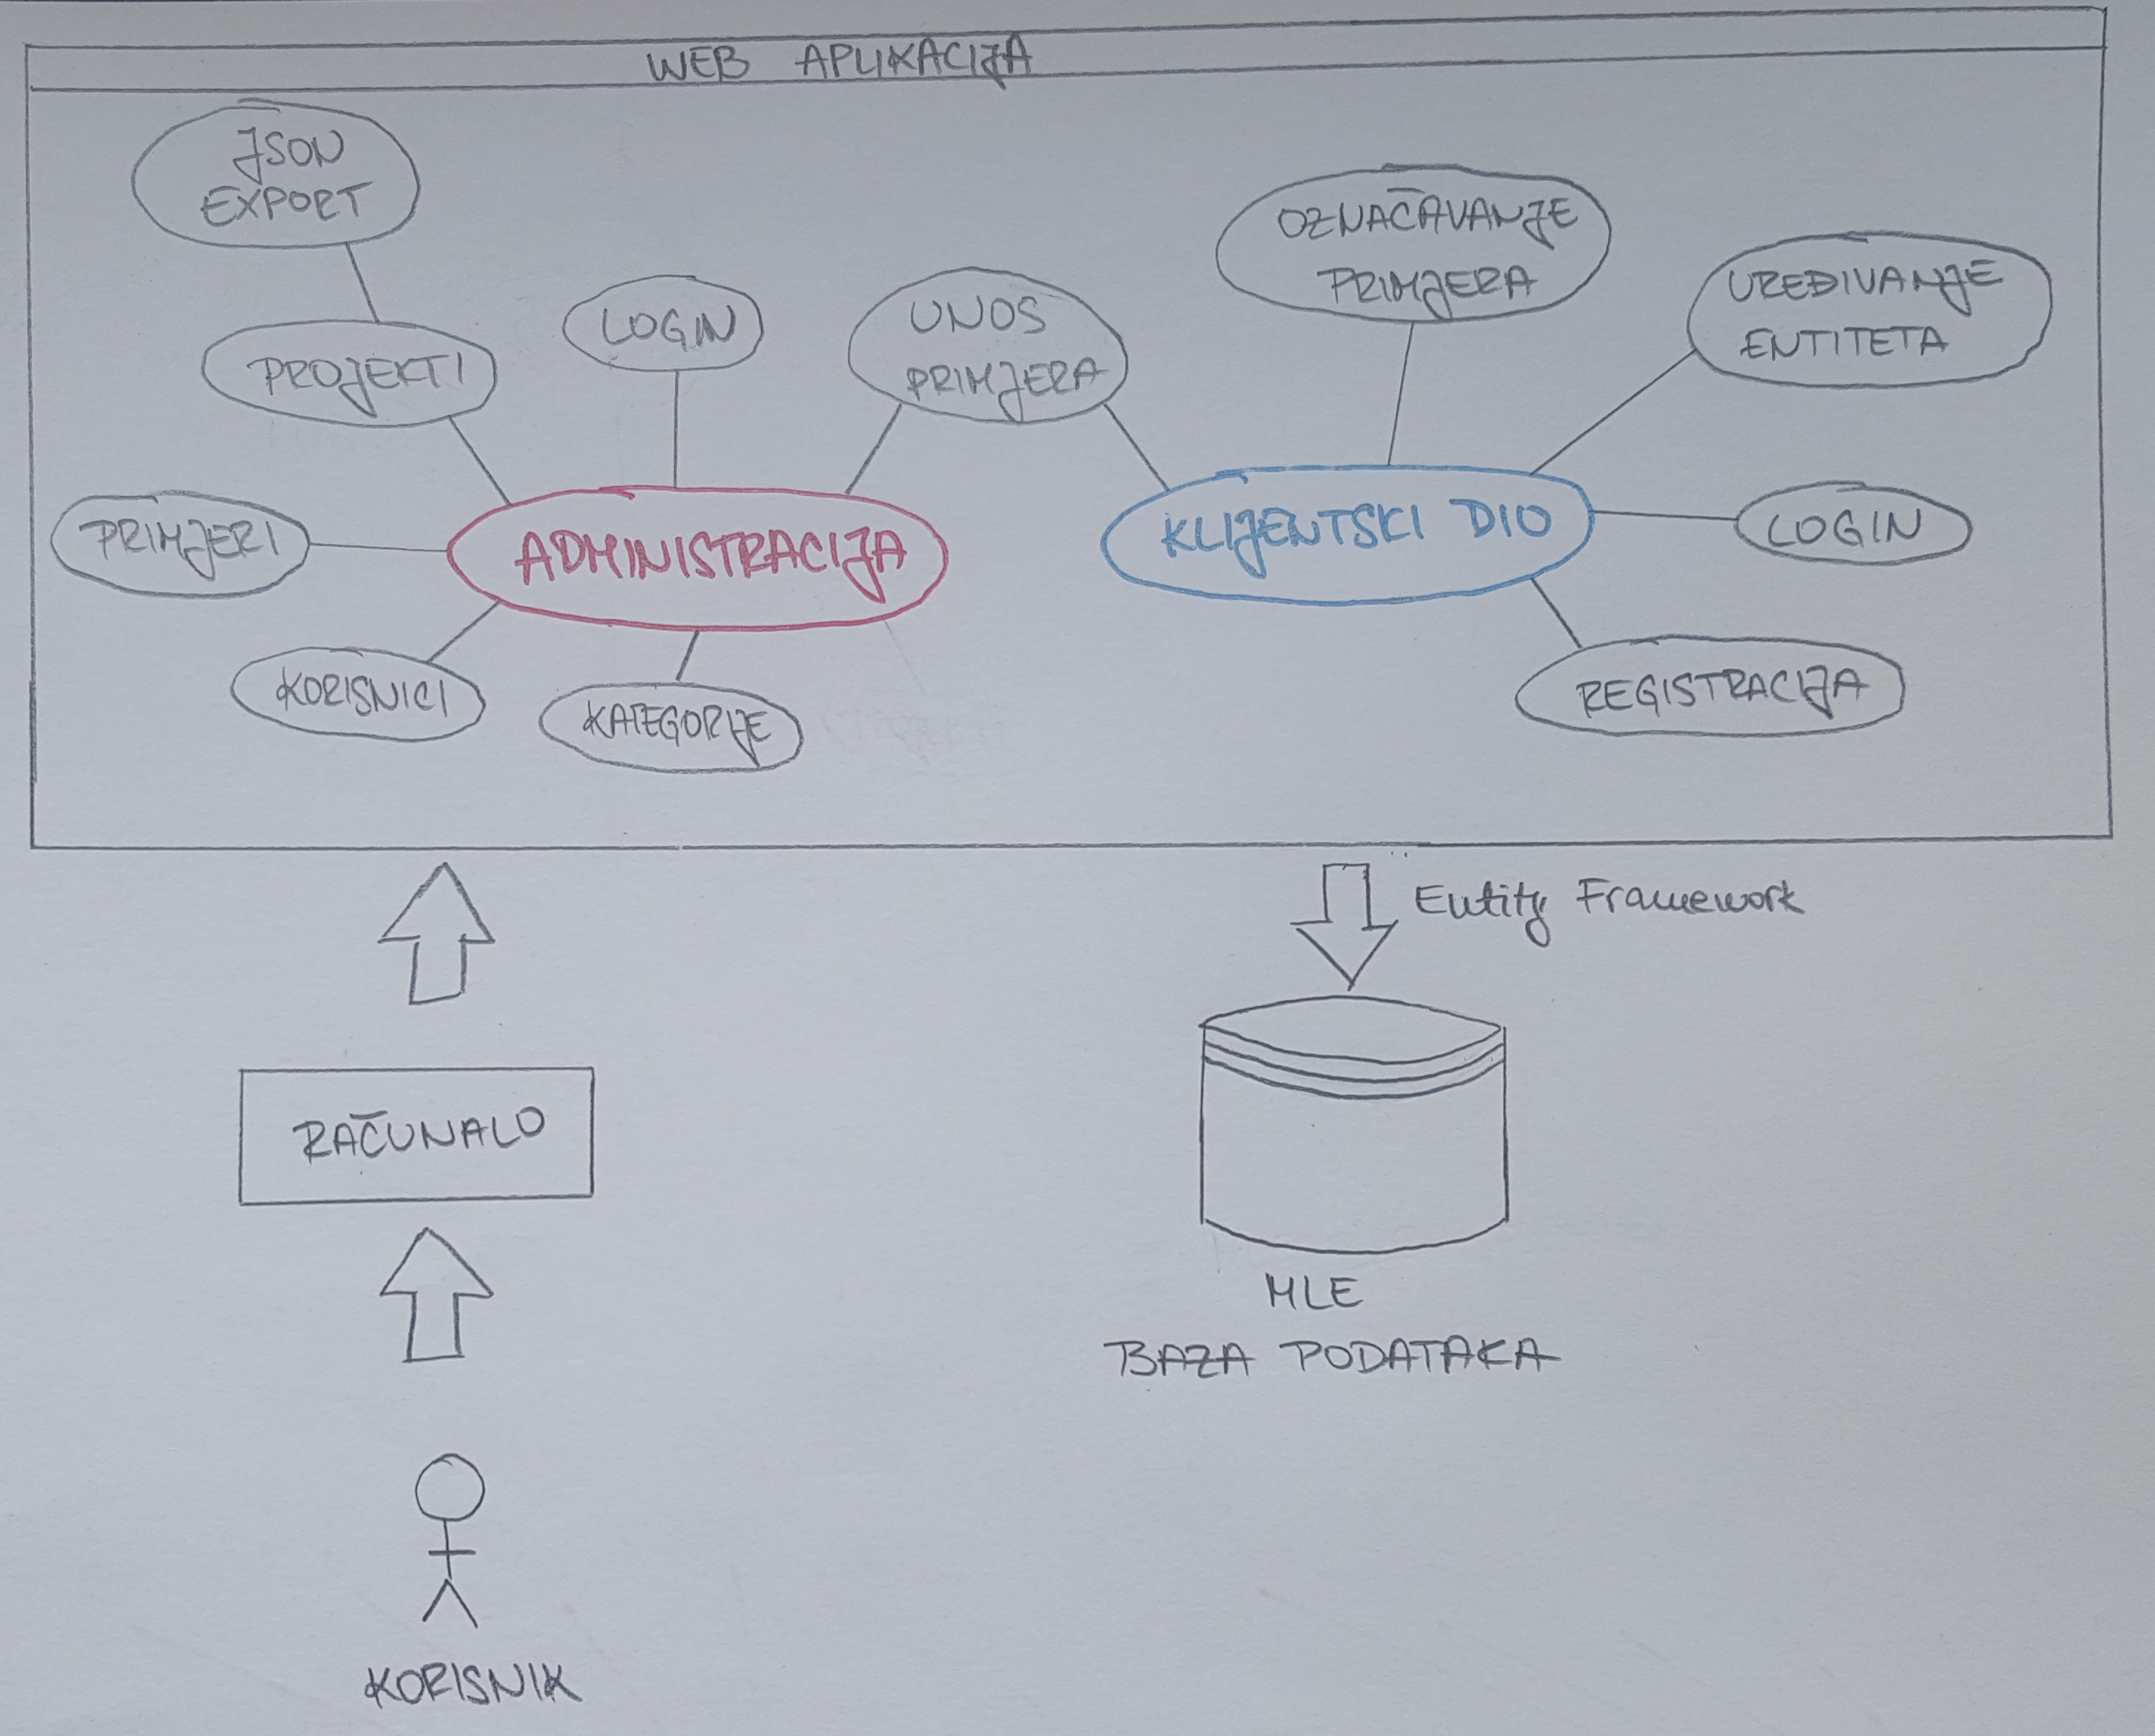 WEB APLIKACIJA
JSON
EXPORT
PROJEKTI
LOGIN
UNOS
PRIMJERA
OZNAČAVANJE
PRIMJERA
UREĐIVANJE
ENTITETA
PRIMJERI
ADMINISTRACIJA
KLIJENTSKI DIO
LOGIN
KORISNICI
KATEGORIJE
REGISTRACIJA
Entity Framework
RAČUNALO
MLE
BAZA PODATAKA
KORISNIK